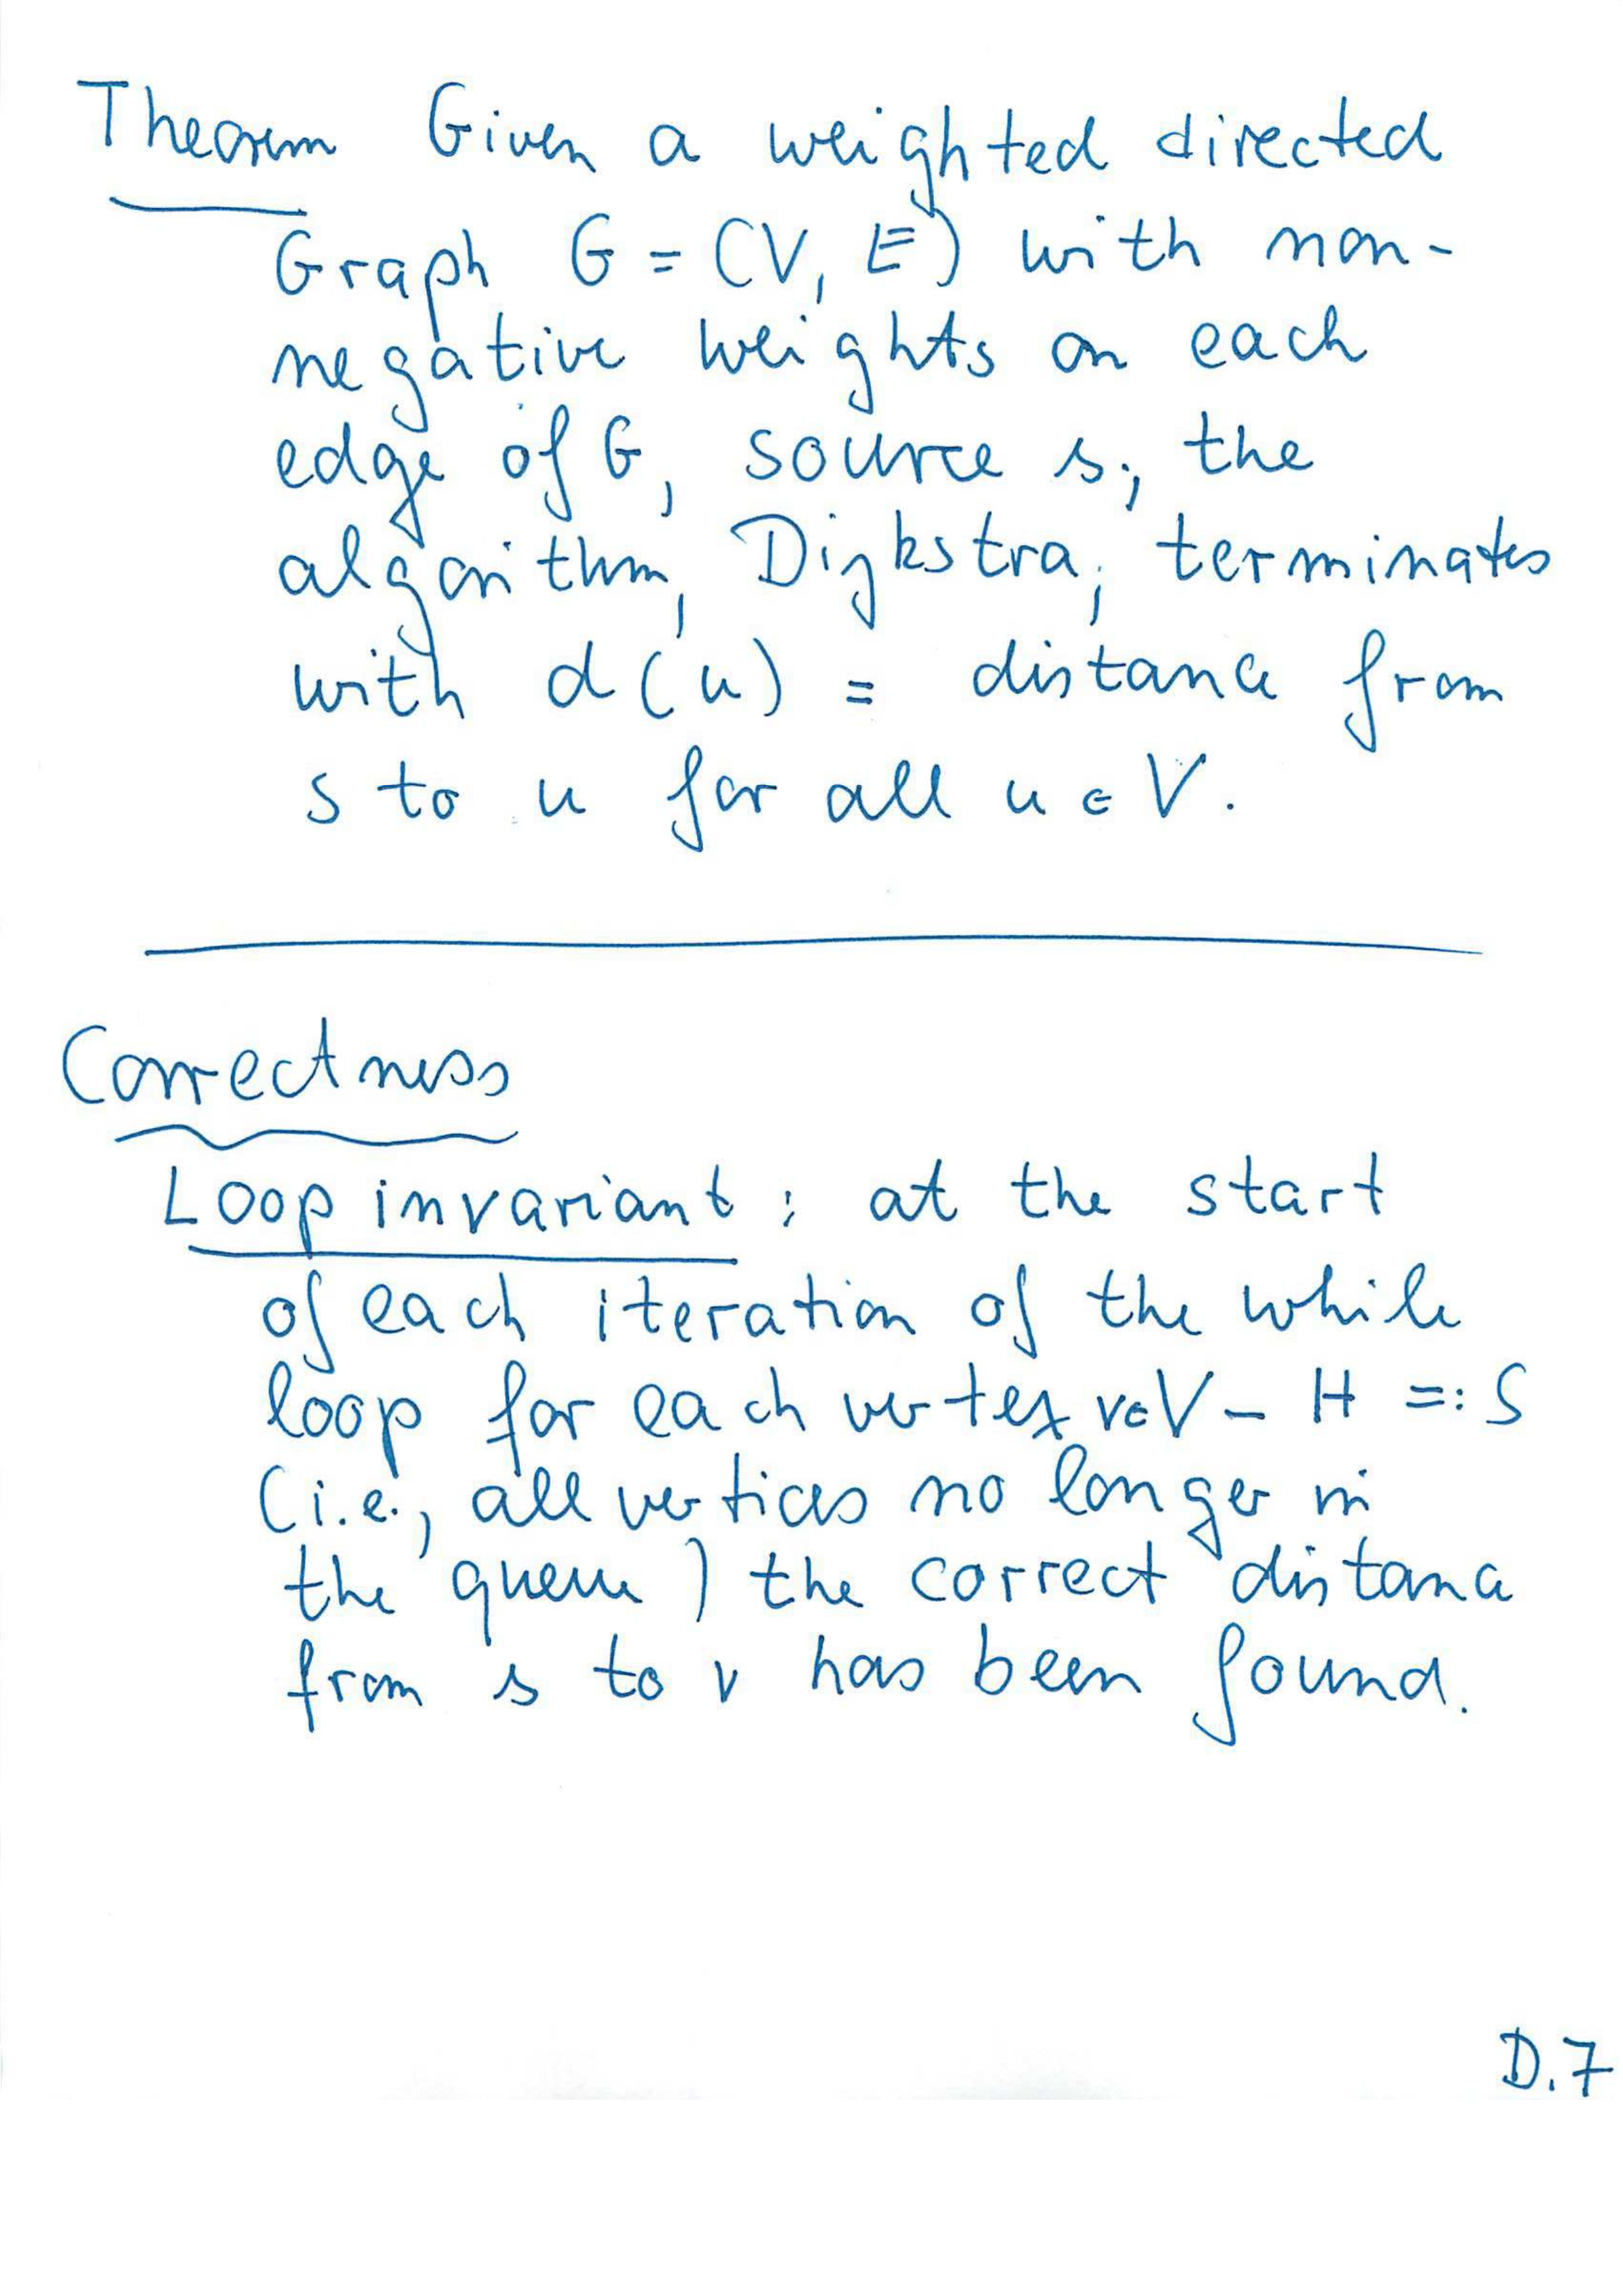 Theorem Given a weighted directed
Graph G = (V, E) with non-
negative weights on each
edge of G, source s, the
algorithm, Dijkstra, terminates
with d(u) = distance from
s to u for all u ∈ V.
Correctness
Loop invariant: at the start
of each iteration of the while
loop for each vertex v∈V - H =: S
(i.e., all vertices no longer in
the queue) the correct distance
from s to v has been found.
D.7